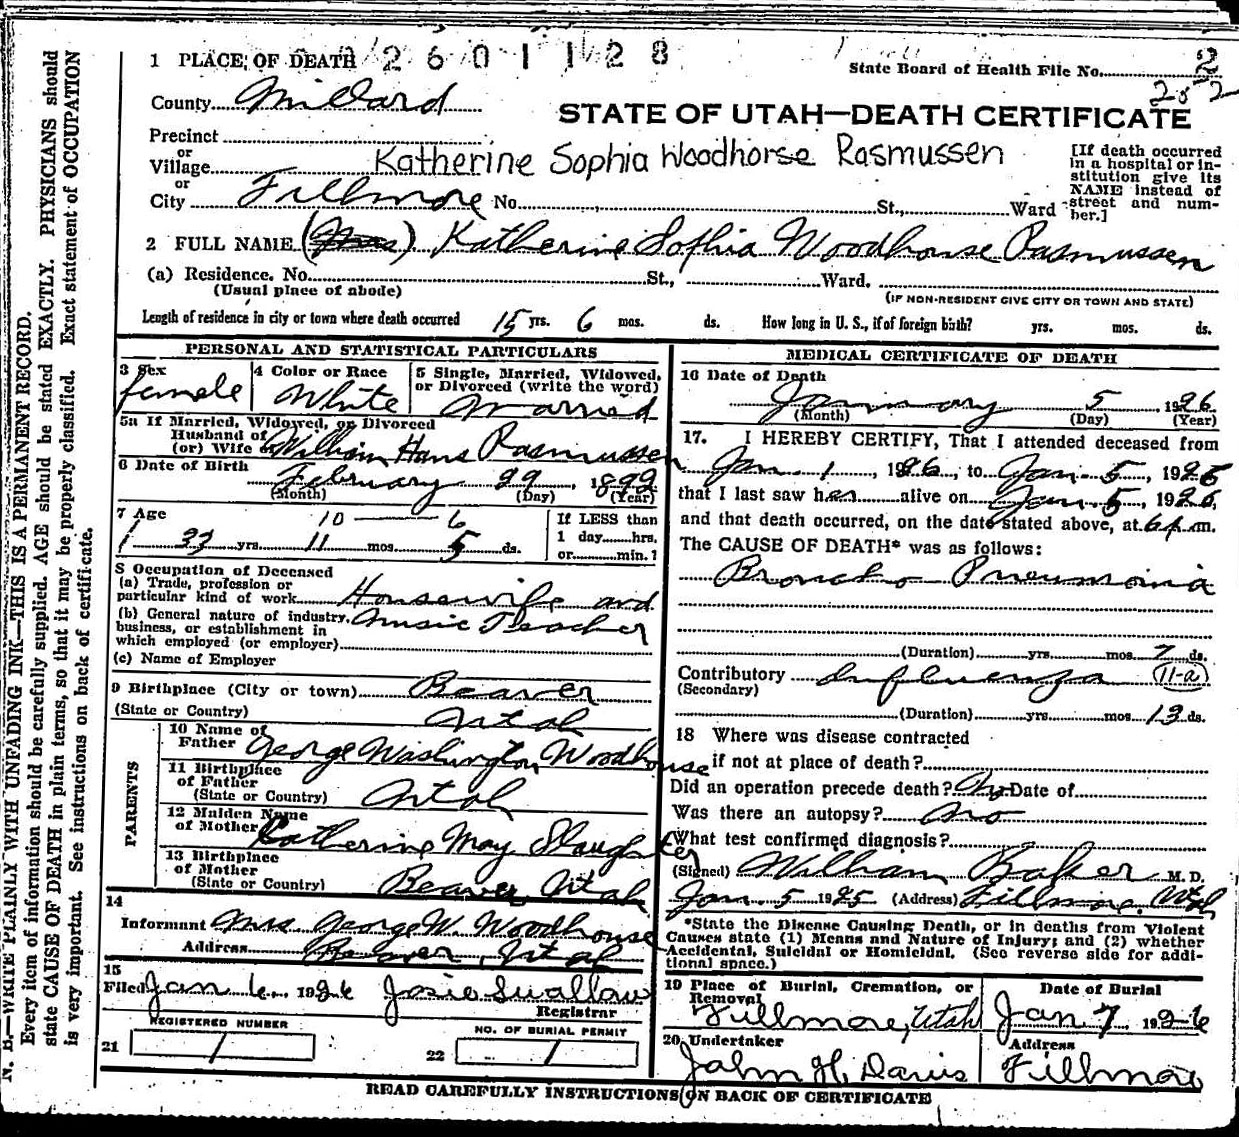 1 PLACE OF DEATH 2601128
State Board of Health File No. 2
252
County Millard
STATE OF UTAH—DEATH CERTIFICATE
Precinct
or
Village
Katherine Sophia Woodhorse Rasmussen
[If death occurred in a hospital or institution give its NAME instead of street and number.]
or
City Fillmore No. St., Ward
2 FULL NAME (Mrs) Katherine Sophia Woodhouse Rasmussen
(a) Residence. No. St., Ward.
(Usual place of abode) (IF NON-RESIDENT GIVE CITY OR TOWN AND STATE)
Length of residence in city or town where death occurred 15 yrs. 6 mos. ds. How long in U. S., if of foreign birth? yrs. mos. ds.
PERSONAL AND STATISTICAL PARTICULARS
3 Sex 4 Color or Race 5 Single, Married, Widowed,
or Divorced (write the word)
female White Married
5a If Married, Widowed, or Divorced
Husband of
(or) Wife of William Hans Rasmussen
6 Date of Birth
February 29, 1892
(Month) (Day) (Year)
7 Age 10 — 6
33 yrs. 11 mos. 5 ds.
If LESS than
1 day hrs.
or min.?
8 Occupation of Deceased
(a) Trade, profession or
particular kind of work Housewife and
(b) General nature of industry, Music Teacher
business, or establishment in
which employed (or employer)
(c) Name of Employer
9 Birthplace (City or town) Beaver
(State or Country) Utah
PARENTS
10 Name of
Father George Washington Woodhouse
11 Birthplace
of Father
(State or Country) Utah
12 Maiden Name
of Mother Catherine May Slaughter
13 Birthplace
of Mother
(State or Country) Beaver Utah
14
Informant Mrs George W. Woodhouse
Address Beaver, Utah
15
Filed Jan 6, 1926 Josie Swallow
Registrar
REGISTERED NUMBER NO. OF BURIAL PERMIT
21 1 22 1
MEDICAL CERTIFICATE OF DEATH
16 Date of Death
January 5, 1926
(Month) (Day) (Year)
17. I HEREBY CERTIFY, That I attended deceased from
Jan. 1, 1926, to Jan. 5, 1926
that I last saw her alive on Jan 5, 1926,
and that death occurred, on the date stated above, at 6 A. m.
The CAUSE OF DEATH* was as follows:
Broncho Pneumonia
(Duration) yrs. mos. 7 ds.
Contributory Influenza (11-a)
(Secondary)
(Duration) yrs. mos. 13 ds.
18 Where was disease contracted
if not at place of death?
Did an operation precede death? No Date of
Was there an autopsy? No
What test confirmed diagnosis?
(Signed) William Baker M. D.
Jan 5 1925 (Address) Fillmore, Utah
*State the Disease Causing Death, or in deaths from Violent
Causes state (1) Means and Nature of Injury; and (2) whether
Accidental, Suicidal or Homicidal. (See reverse side for addi-
tional space.)
19 Place of Burial, Cremation, or
Removal
Fillmore, Utah
Date of Burial
Jan 7 1926
20 Undertaker
John H. Davis
Address
Fillmore
READ CAREFULLY INSTRUCTIONS ON BACK OF CERTIFICATE
N. B.—WRITE PLAINLY WITH UNFADING INK—THIS IS A PERMANENT RECORD.
Every item of information should be carefully supplied. AGE should be stated EXACTLY. PHYSICIANS should
state CAUSE OF DEATH in plain terms, so that it may be properly classified. Exact statement of OCCUPATION
is very important. See instructions on back of certificate.